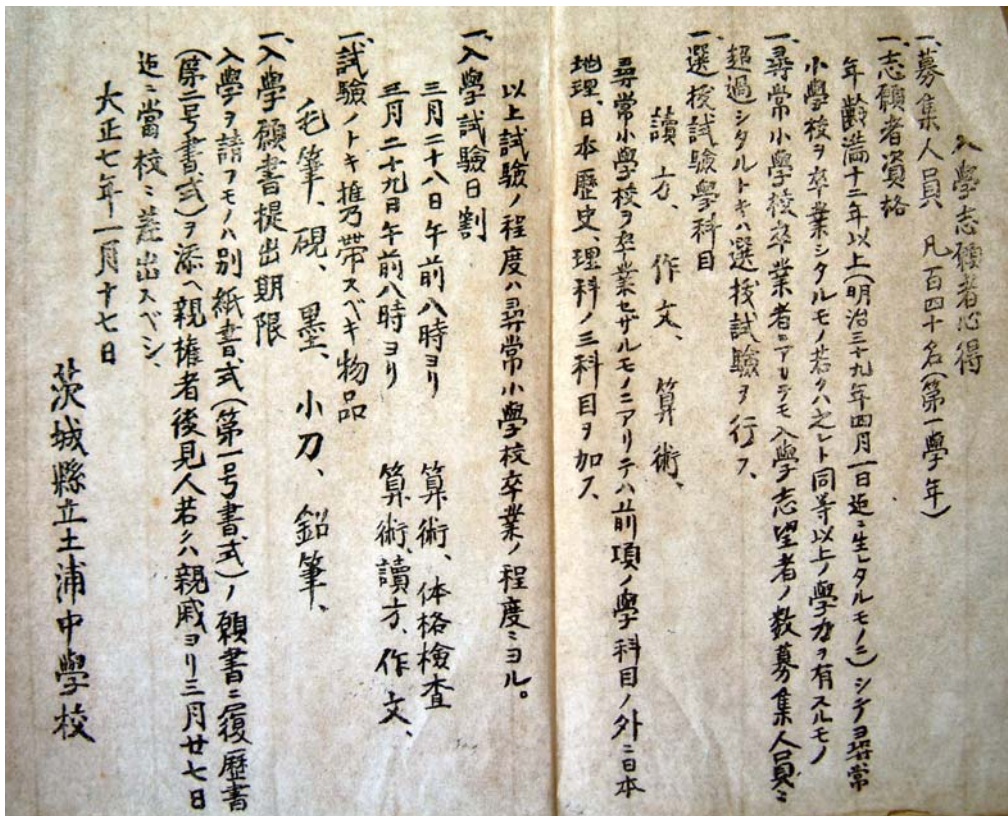 入學志願者心得
一、募集人員、凡百四十名(第一學年)
一、志願者資格
年齢満十二年以上(明治三十九年四月一日迠ニ生レタルモノ)ニシテヨ尋常
小學校ヲ卒業シタルモノ若クハ之レト同等以上ノ學力ヲ有スルモノ
一、尋常小學校卒業者ニアリテモ入學志望者ノ数募集人員ニ
超過シタルトキハ選抜試驗ヲ行フ、
一、選抜試驗學科目
讀方、作文、算術、
尋常小學校ヲ卒業セザルモノニアリテハ前項ノ學科目ノ外ニ日本
地理、日本歴史、理科ノ三科目ヲ加フ、
以上試驗ノ程度ハ尋常小學校卒業ノ程度ニヨル。
一、入學試驗日割
三月二十八日午前八時ヨリ 算術、体格檢査
三月二十九日午前八時ヨリ 算術、讀方、作文、
一、試驗ノトキ携帯スベキ物品
毛筆、硯、墨、小刀、鉛筆、
一、入學願書提出期限
入學ヲ請フモノハ別紙書式(第一号書式)ノ願書ニ履歴書
(第二号書式)ヲ添ヘ親権者後見人若クハ親戚ヨリ三月廿七日
迠ニ當校ニ差出スベシ、
大正七年一月十七日
茨城縣立土浦中學校